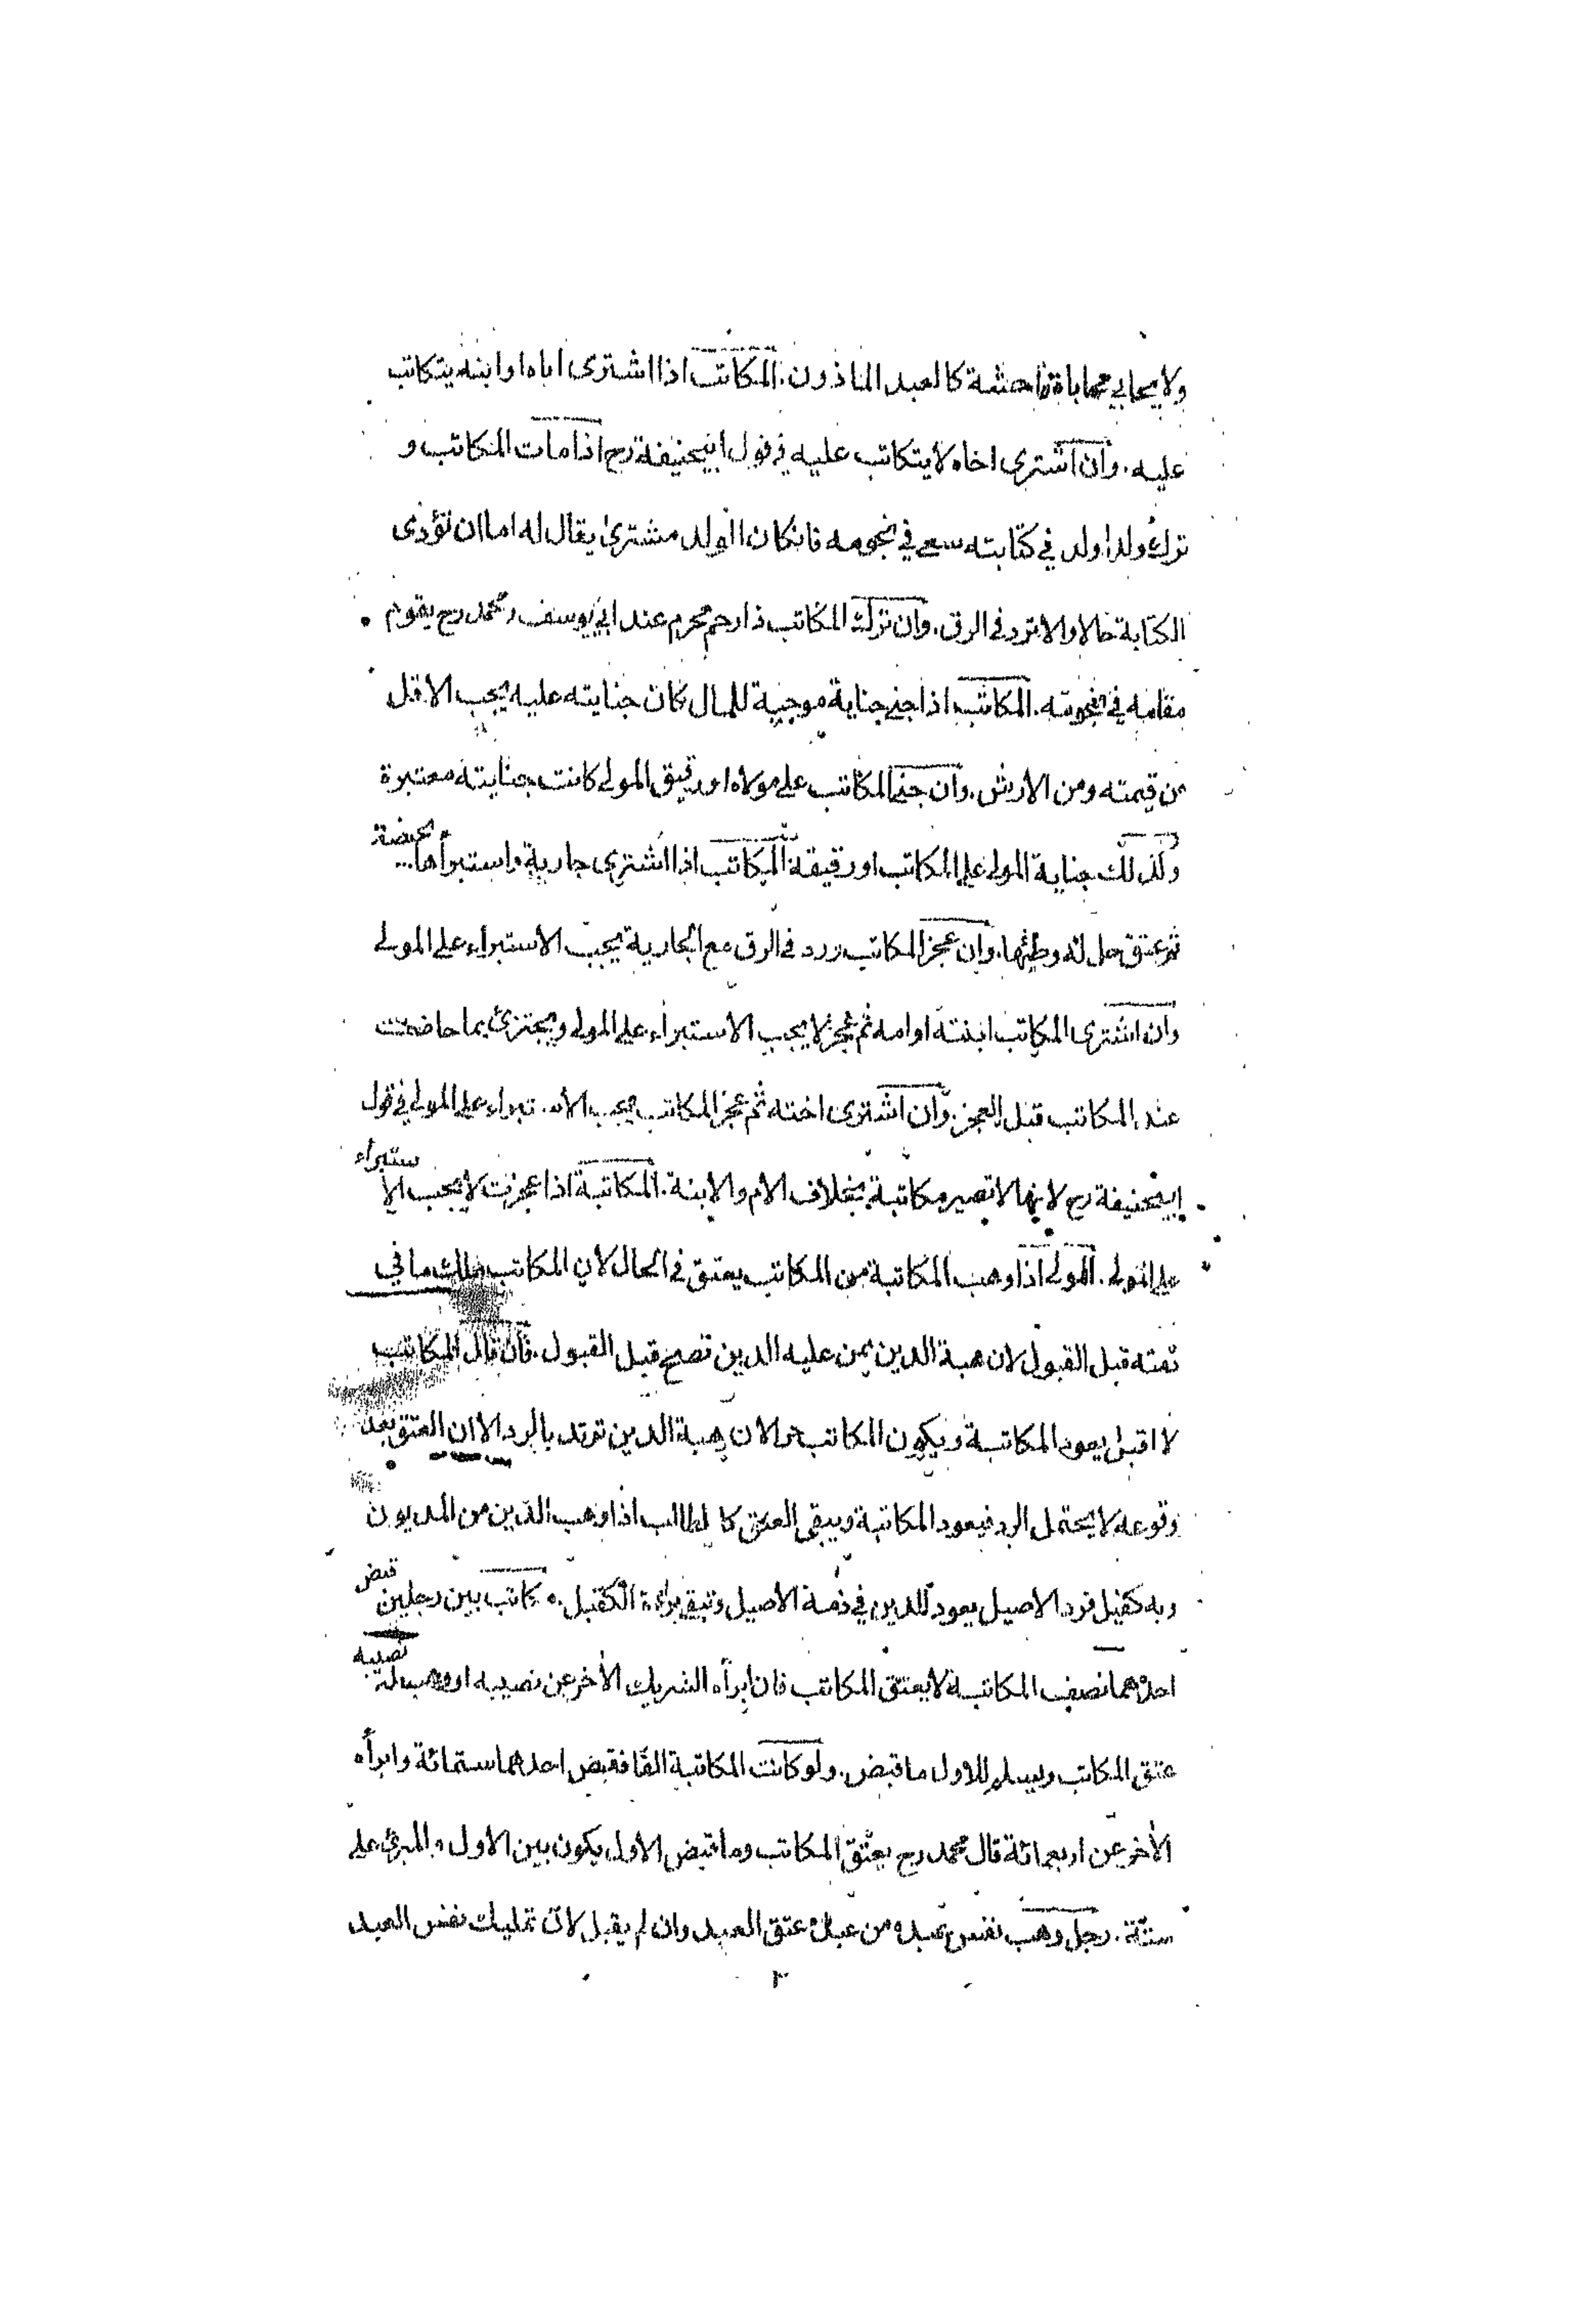 ولا يحابي محاباة فاحشة كالعبد الماذون. المكاتب اذا اشترى اباه او ابنه يتكاتب
عليه. وان اشترى اخاه لا يتكاتب عليه في قول ابيحنيفة رح اذا مات المكاتب و
ترك ولدا ولد في كتابته سعى في نجومه فانكان الولد مشترى يقال له اما ان تؤدى
الكتابة حالا والا ترد في الرق. وان ترك المكاتب ذا رحم محرم عند ابي يوسف ومحمد رح يقوم
مقامه في نجومه. المكاتب اذا جنى جناية موجبة للمال كان جنايته عليه يجب الاقل
من قيمته ومن الارش. وان جنى المكاتب على مولاه او رقيق المولى كانت جنايته معتبرة
وكذلك جناية المولى على المكاتب او رقيقه المكاتب اذا اشترى جارية واستبرأها بحيضة
ثم عتق حل له وطئها. وان عجز المكاتب ورد في الرق مع الجارية يجب الاستبراء على المولى
وان اشترى المكاتب ابنته او امه ثم عجز لا يجب الاستبراء على المولى ويجتزئ بما حاضت
عند المكاتب قبل العجز. وان اشترى اخته ثم عجز المكاتب يجب الاستبراء على المولى في قول
ابيحنيفة رح لانها لا تصير مكاتبة بخلاف الام والابنة. المكاتبة اذا عجزت لا يجب الاستبراء
على المولى. المولى اذا وهب المكاتبة من المكاتب يعتق في الحال لان المكاتب ملك ما في
ذمته قبل القبول لان هبة الدين يمن عليه الدين تصح قبل القبول. فان قال المكاتب
لا اقبل يعود المكاتبة ويكون المكاتب حرا لان هبة الدين ترتد بالرد الا ان العتق بعد
وقوعه لا يحتمل الرد فيعود المكاتبة ويبقى العتق كالطالب اذا وهب الدين من المديون
وبه كفيل فرد الاصيل يعود للدين في ذمة الاصيل وتبقى براءة الكفيل. مكاتب بين رجلين قبض
احدهما نصف المكاتبة لا يعتق المكاتب فان ابرأه الشريك الآخر عن نصيبه او وهب له نصيبه
عتق المكاتب ويسلم للاول ما قبض. ولو كانت المكاتبة الفا فقبض احدهما ستمائة وابرأه
الآخر عن اربعمائة قال محمد رح يعتق المكاتب وما قبض الاول يكون بين الاول والمبرئ على
ستة. رجل وهب نفس عبده من عبده عتق العبد وان لم يقبل لان تمليك نفس العبد